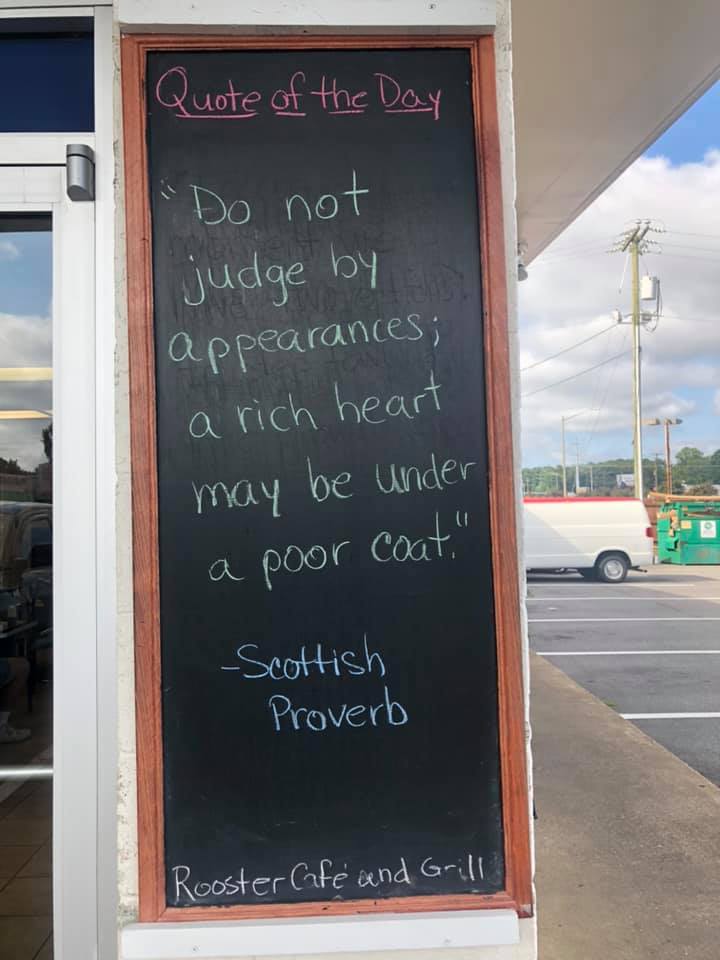 Quote of the Day
"Do not
judge by
appearances;
a rich heart
may be under
a poor coat."
-Scottish
Proverb
Rooster Café and Grill